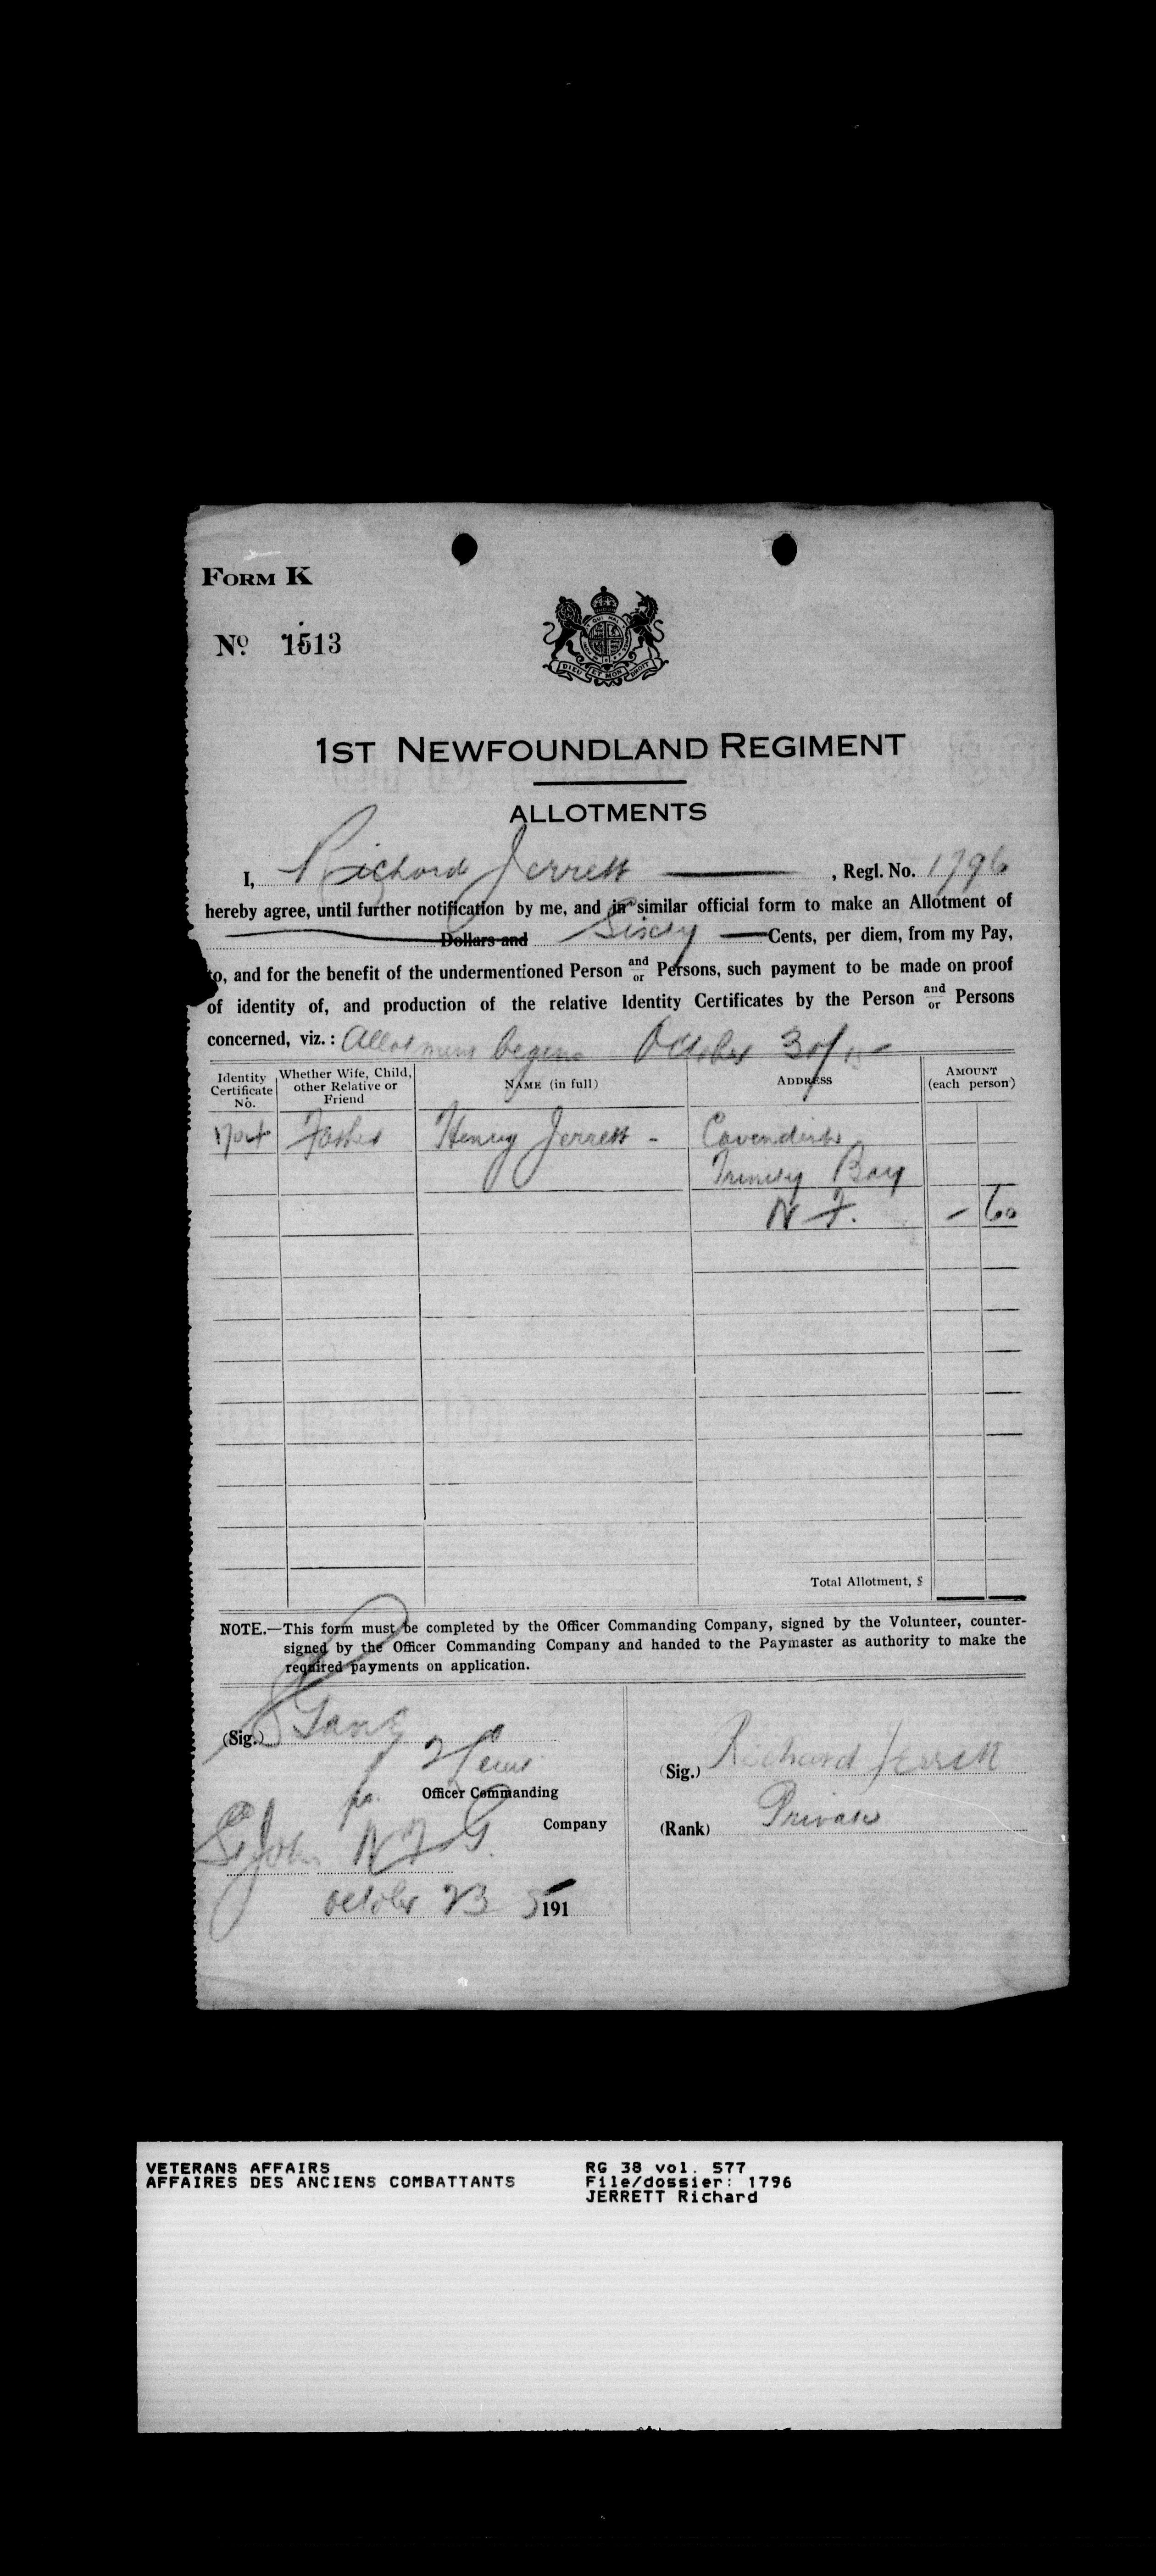 FORM K
No. 1513
DIEU ET MON DROIT
1ST NEWFOUNDLAND REGIMENT
ALLOTMENTS
I, Richard Jerrett , Regl. No. 1796
hereby agree, until further notification by me, and in similar official form to make an Allotment of
Dollars and Sixty Cents, per diem, from my Pay,
to, and for the benefit of the undermentioned Person and/or Persons, such payment to be made on proof
of identity of, and production of the relative Identity Certificates by the Person and/or Persons
concerned, viz.: Allotment begins October 30/15
Identity Certificate No. Whether Wife, Child, other Relative or Friend NAME (in full) ADDRESS AMOUNT (each person)
Father Henry Jerrett - Cavendish
Trinity Bay
N F. - 60
Total Allotment, $
NOTE.—This form must be completed by the Officer Commanding Company, signed by the Volunteer, counter-
signed by the Officer Commanding Company and handed to the Paymaster as authority to make the
required payments on application.
(Sig.)
(Sig.) Richard Jerrett
Officer Commanding
Company
(Rank) Private
St John
October 23 5 191
VETERANS AFFAIRS RG 38 vol. 577
AFFAIRES DES ANCIENS COMBATTANTS File/dossier: 1796
JERRETT Richard